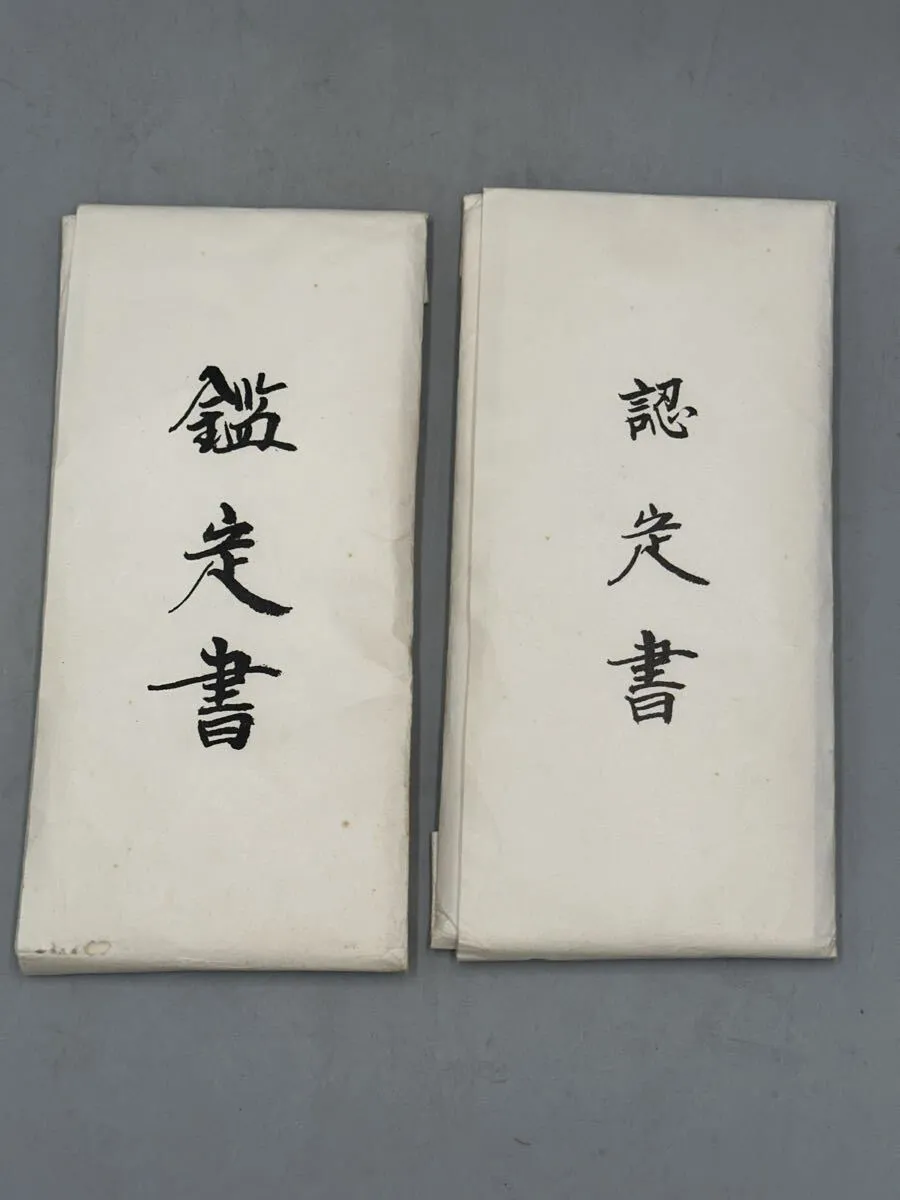 鑑定書
認定書